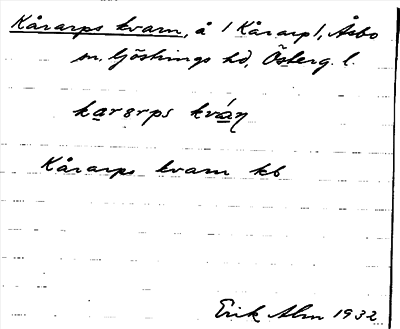 Kårarps kvarn, å 1 Kårarp 1, Åsbo
sn, Göstrings hd, Österg. l.
karərps kván
Kårarps kvarn kb
Erik Alm 1932